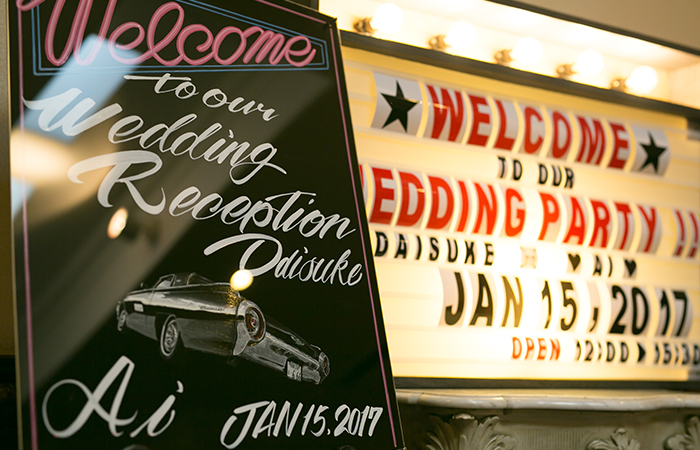 Welcome
to our
Wedding
Reception
Ddisuke
Ai
JAN 15, 2017
★ WELCOME ★
TO OUR
EDDING PARTY !!
DAISUKE ♥ AI ♥
JAN 15, 2017
OPEN 12:00 ▶ 15:30